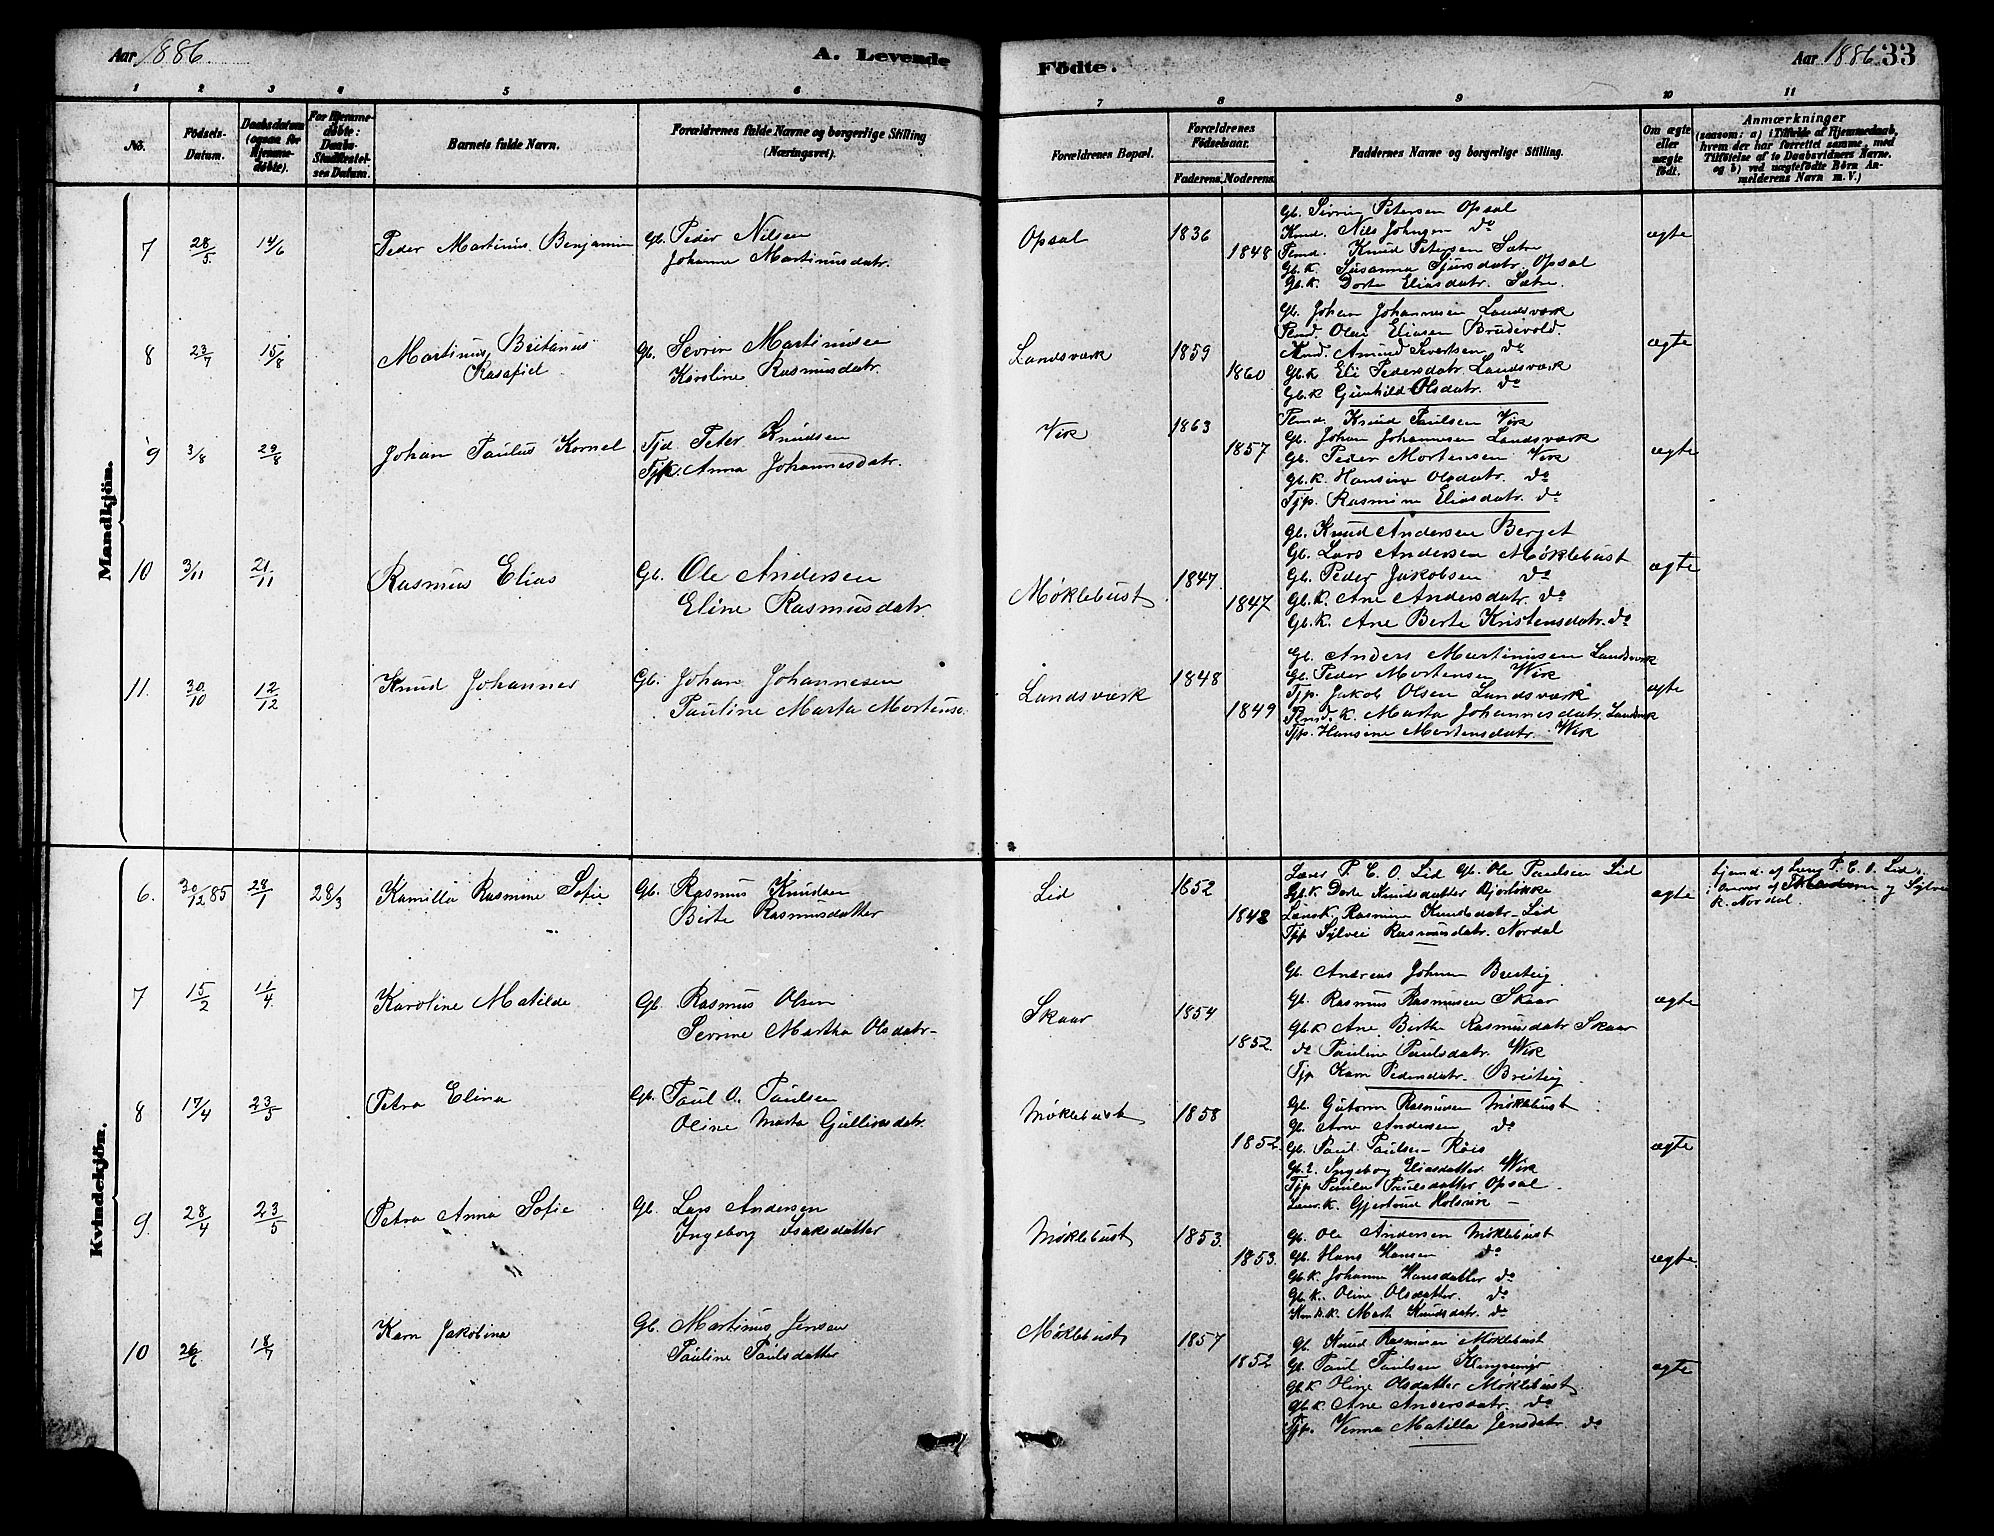 Aar 1886
A. Levende
Födte.
Aar 1886 33
1 2 3 4 5 6 7 8 9 10 11
No.
Födsels-Datum.
Daabsdatum (ogsaa for Hjemmedöbte).
For Hjemmedöbte: Daabs-Stadfæstelses Datum.
Barnets fulde Navn.
Forældrenes fulde Navne og borgerlige Stilling (Næringsvei).
Forældrenes Bopæl.
Forældrenes Födselsaar.
Faderens. Moderens.
Faddernes Navne og borgerlige Stilling.
Om ægte eller uægte födt.
Anmærkninger
(saasom: a) i Tilfælde af Hjemmedaab, hvem der har forrettet samme, med Tilföielse af to Daabsvidners Navne, og b) ved uægtefödte Börn Anmelderens Navn m. V.)
Mandkjön.
7 28/5 14/6 Peder Martinus Benjamin Gb. Peder Nilsen
Johanne Martinusdatr.
Opsal 1836 1848
Gb. Sivrin Petersen Opsal
Knud. Nils Johnsen do
Pmd. Knud Petersen Sætre
Gb.K. Susanna Sjursdatr. Opsal
Gb.K. Dorte Eliasdatr. Sætre.
ægte
8 23/7 15/8 Martinus Britanus
Rasafiel
Gb. Sevrin Martinusen
Karoline Rasmusdatr.
Landsværk 1859 1860
Gb. Johan Johannesen Landsværk
Pmd. Olai Eliasen Brudevold
Knd. Amund Sivertsen do
Gb.K Eli Pedersdatr. Landsværk
Gb.K Gunhild Olsdatr. do
ægte
9 3/8 29/8 Johan Paulus Kornel Tjd Peter Knudsen
Tjp. Anna Johannesdatr.
Vik 1863 1857
Pmd. Knud Paulsen Vik
Gb. Johan Johannesen Landsværk
Gb. Peder Mortensen Vik
Gb.K. Hansine Olsdatr. do
Tjp. Rasmine Eliasdatr. do
ægte
10 3/11 21/11 Rasmus Elias Gb. Ole Andersen
Eline Rasmusdatr.
Møklebust 1847 1847
Gb. Knud Andersen Berget
Gb. Lars Andersen Møklebust
Gb. Peder Jakobsen do
Gb.K. Ane Andersdatr. do
Gb.K. Ane Berte Kristensdatr. do
ægte
11. 30/10 12/12 Knud Johanner Gb. Johan Johannesen
Pauline Marta Mortensd.
Landsværk 1848 1849
Gb. Anders Martinusen Landsværk
Gb. Peder Mortensen Wik
Tjp. Jakob Olsen Landsværk
Pmd. K. Marta Johannesdatr. Landsvk
Tjp. Hansine Mortensdatr. Wik
ægte
Kvindekjön.
6. 30/12 85 28/1 28/3 Kamilla Rasmine Sofie Gb. Rasmus Knudsen
Berte Rasmusdatter
Lid 1852 1848
Lærer P. E. O. Lid Gb. Ole Paulsen Lid
Gb.K Dorte Knudsdatter
Lærer K. Rasmine Knudsdatr. Lid
Tjp Sylvei Rasmusdatr. Nordal
ægte
hjemd. af Lærer P. E. O. Lid
k. Nordal.
7 15/2 11/4 Karoline Matilde Gb. Rasmus Olsen
Sevrine Martha Olsdatr.
Skaar 1854 1852.
Gb. Andreas Johnsen Breiteig
Gb. Rasmus Rasmusen Skaar
Gb.K Ane Birthe Rasmusdatr Skaar
do Pauline Paulsdatr. Wik
Tjp Karn Pedersdatr. Breiteig
ægte
8 17/4 23/5 Petra Elina Gb. Paul O. Paulsen
Oline Marta Gullivsdatr.
Møklebust 1858 1852
Gb. Gutorm Rasmusen Møklebust
Gb. Arne Andersen do
Gb. Paul Paulsen Røis
Gb.K. Ingeborg Eliasdatter Wik
Tjp Paula Paulsdatter Opsal
Lærer K. Gjertrud Holsvik
ægte
9 28/4 23/5 Petra Anna Sofie Gb. Lars Andersen
Ingeborg Isaksdatter
Møklebust 1853. 1853.
Gb. Ole Andersen Møklebust
Gb. Hans Hansen do
Gb.K. Johanne Hansdatter do
Gb.K. Oline Olsdatter do
Knd.K. Mart Knudsdatr. do
ægte.
10 26/6 18/7 Karn Jakobina Gb. Martinus Jensen
Pauline Paulsdatter
Møklebust 1857 1852
Gb. Knud Rasmusen Møklebust
Gb. Paul Paulsen
Gb.K Oline Olsdatter Møklebust
Gb.K. Ane Andersdatr. do
Tjp. Verma Matilla Jensdatr. do
ægte